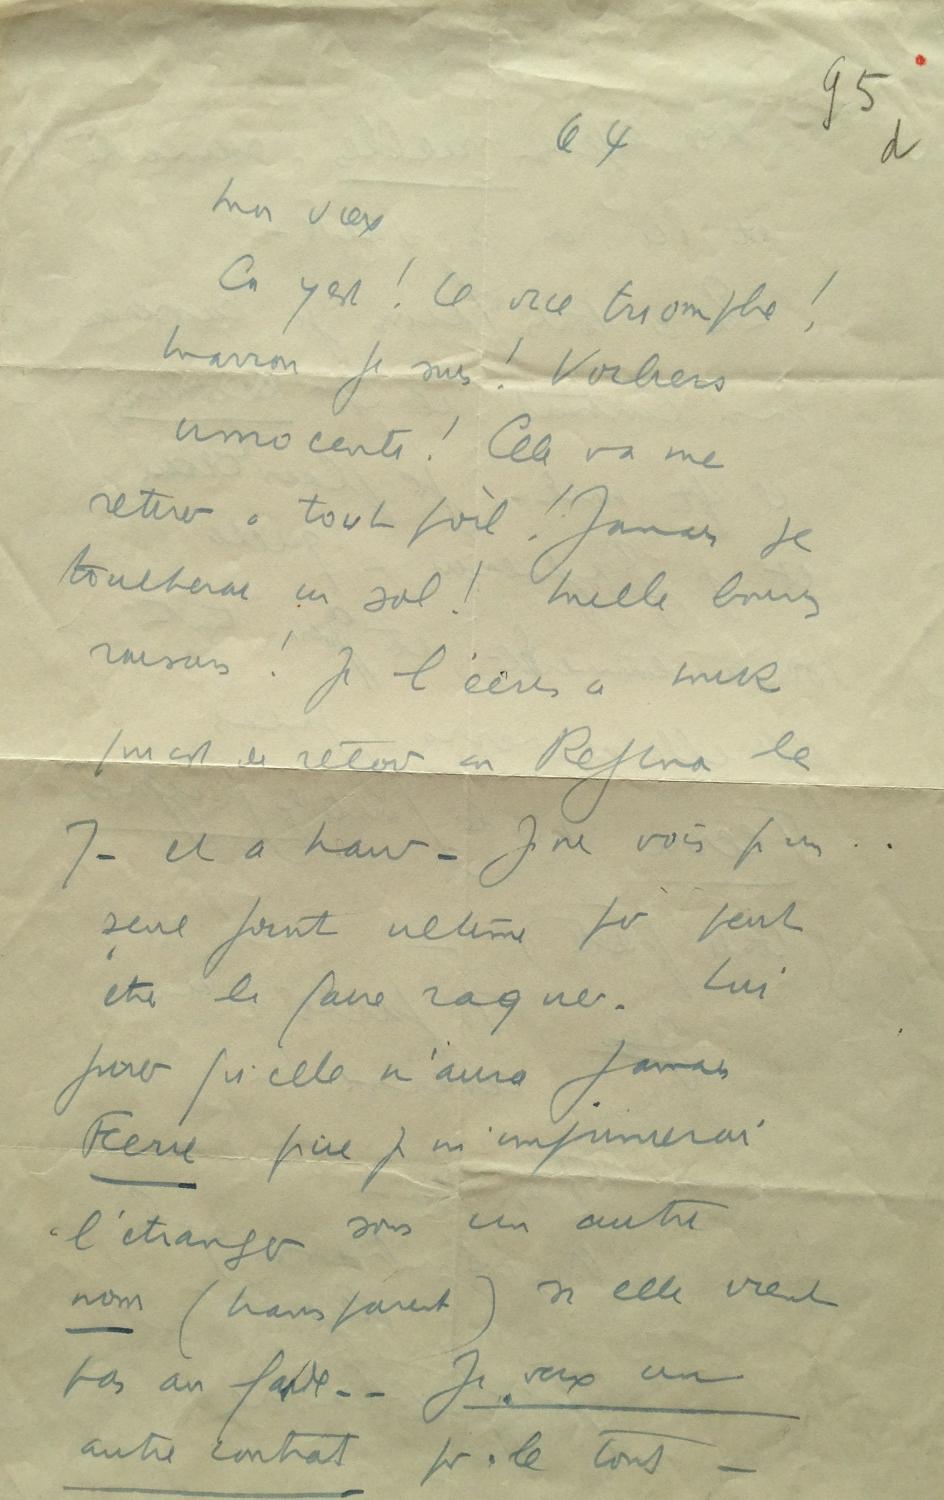 95
d
64
mon vieux
Ca y est ! Le vice triomphe !
marron je suis ! Vorbiers
innocents ! Cela va me
retirer a tout poil ! Jamais je
toucherai un sol ! mille bonnes
raisons ! Je l'écris a mick
qui est de retour en Regina le
7 - et a haur - Je ne vois plus ..
seul point ultime pr peut
être le faire raquer. Lui
jurer qu'elle n'aura jamais
Feerie que je m'imprimerai
l'étranger sous un autre
nom (transparent) si elle vient
pas au fade - - Je veux un
autre contrat pr le tout -